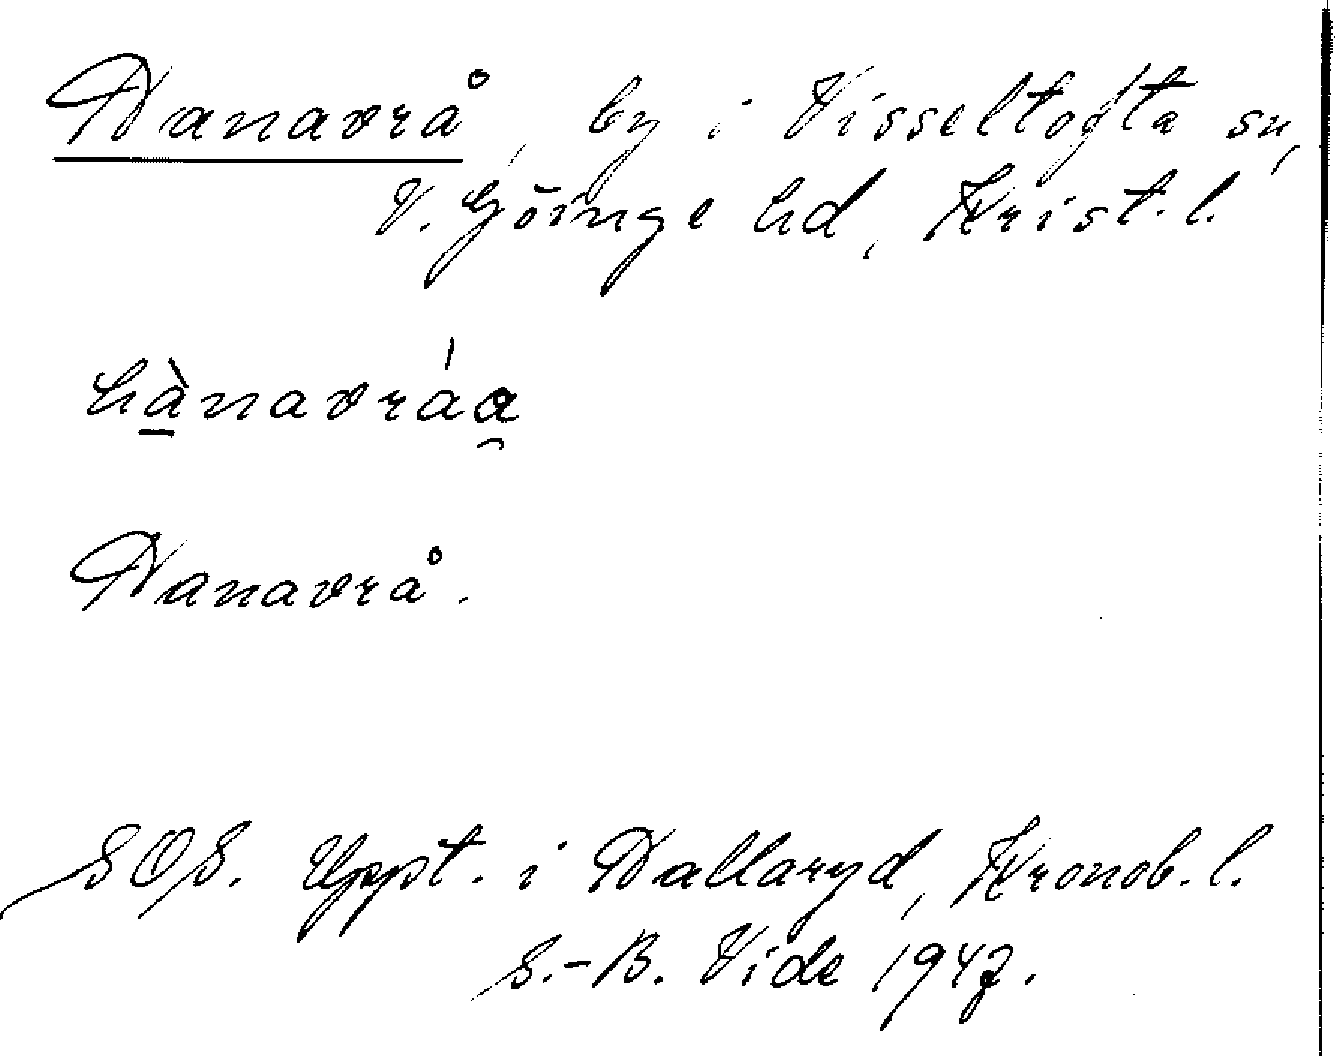 Hanavrå, by i Visseltofta sn,
V. Göinge hd, Krist. l.
hànavráa̯
Hanavrå.
SOS. Uppt. i Hallaryd, Kronob. l.
S.-B. Vide 1947.